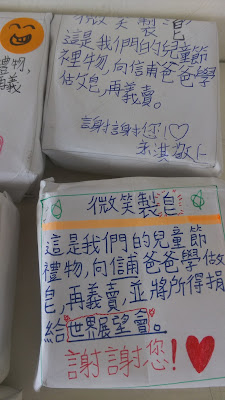 禮物,
義
微笑製皂
這是我們的兒童節
禮物,向信甫爸爸學
做皂,再義賣。
謝謝您!
敬上
微笑製皂
這是我們的兒童節
禮物,向信甫爸爸學做
皂,再義賣,並將所得捐
給世界展望會。
謝謝您!